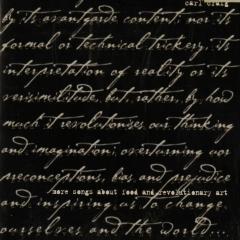 carl craig
by its avantgarde content, nor its
formal or technical trickery, its
interpretation of reality or its
verisimilitude, but, rather, by how
much it revolutionises our thinking
and imagination; overturning our
preconceptions, bias and prejudice
more songs about food and revolutionary art
and inspiring us to change
ourselves and the world...